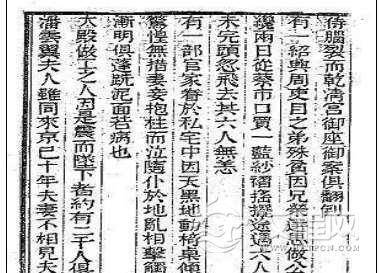 傷腦裂而乾清宮御座御案俱翻倒
有一紹興周吏目之弟殊貧因兄榮選思做公
纔兩日從蔡市口買一藍紗褶搖擺途遇六人
未完頭忽飛去其六人無恙
有一部官家眷於私宅中因天黑地動椅桌傾
驚惶無措妻妾抱柱而泣隨仆於地亂相擊觸
漸明俱蓬跣泥面若病也
大殿做工之人因是震而墜下者約有二千人俱
潘雲翼夫人雖同來京已十年夫妻不相見夫